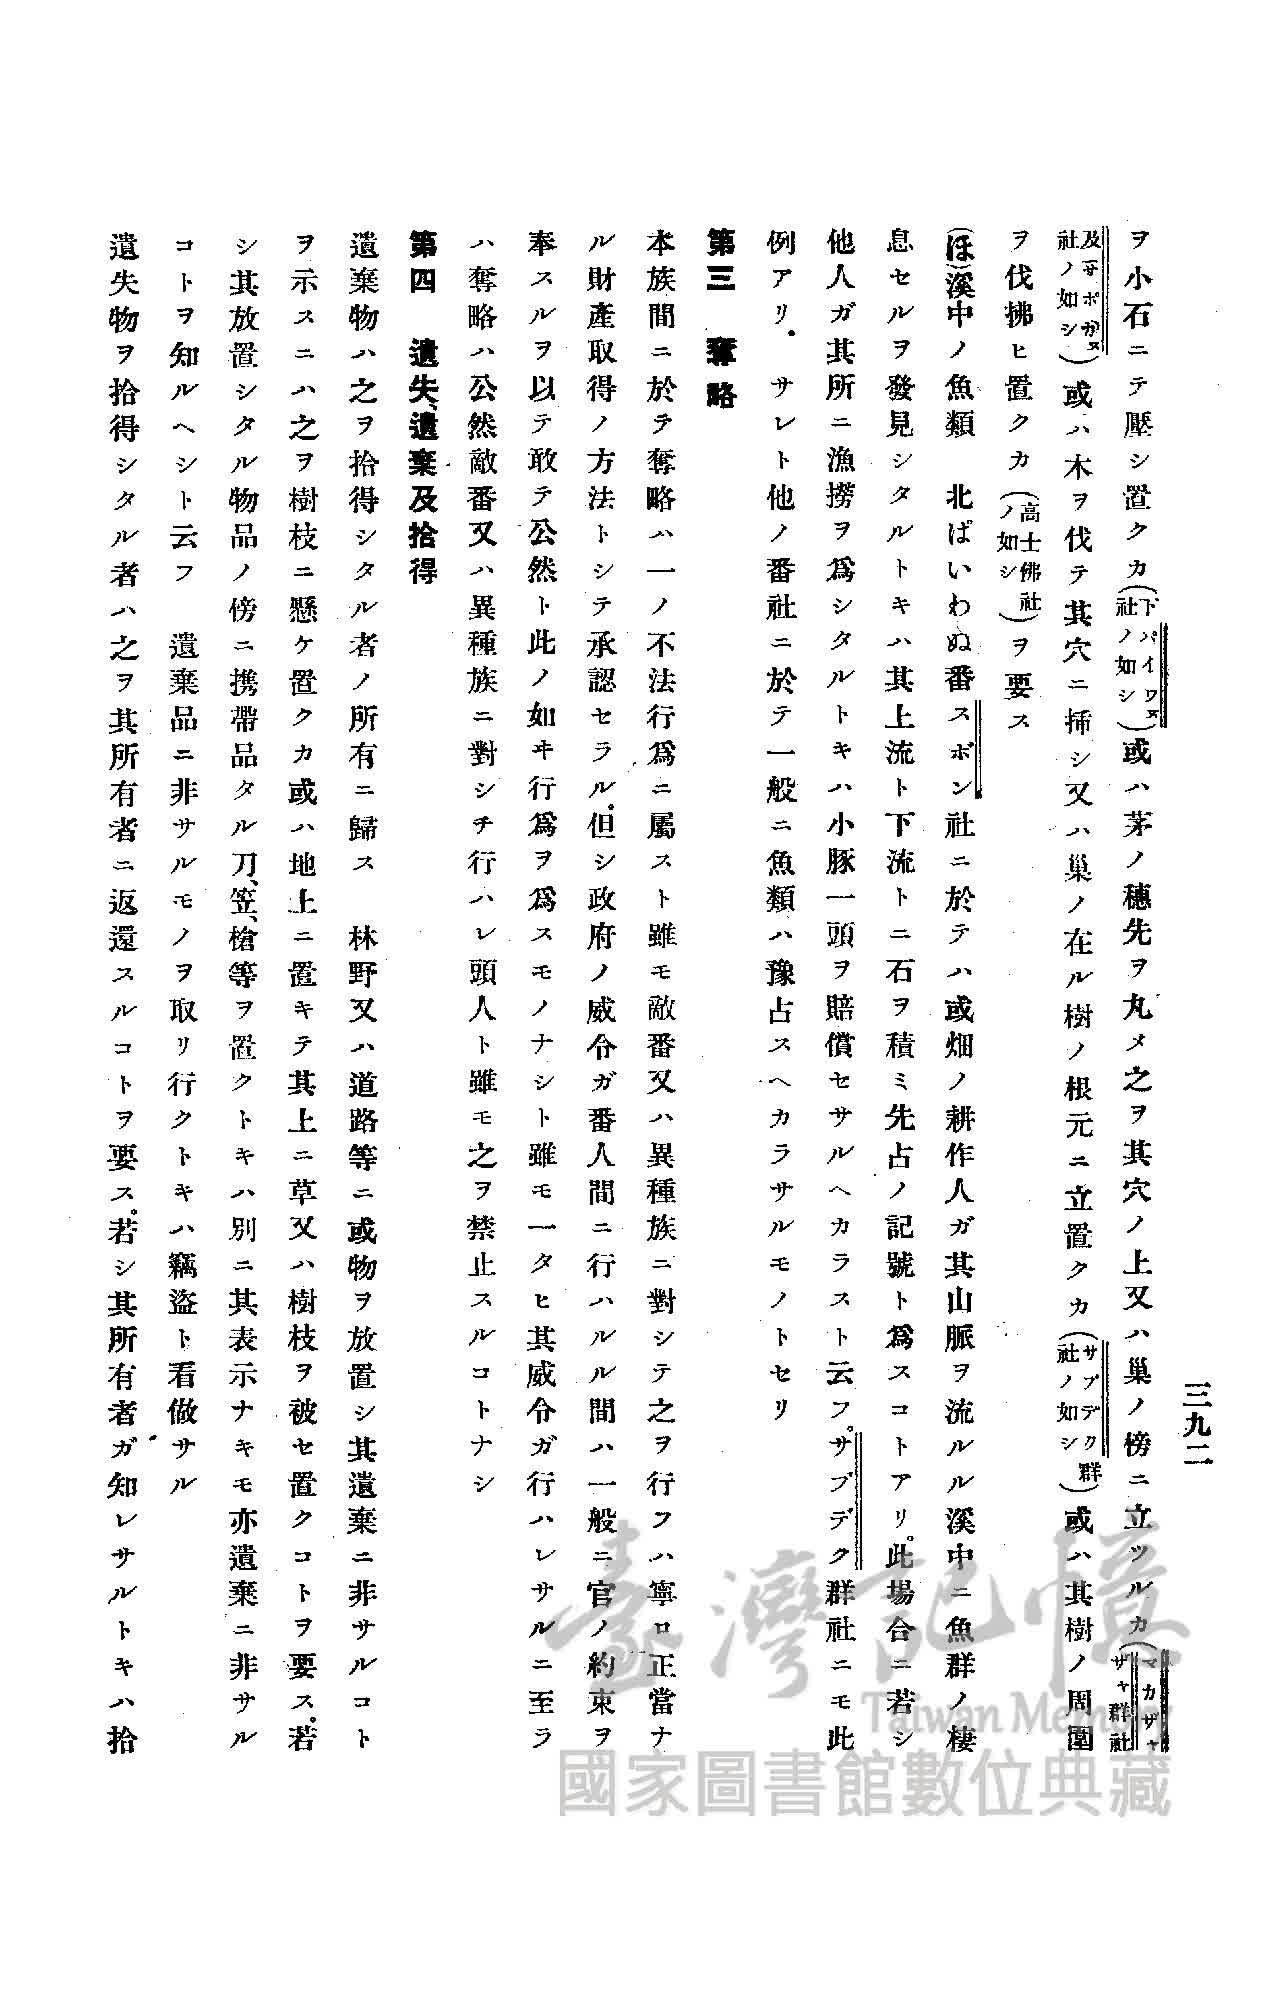 三九二
ヲ小石ニテ壓シ置クカ(下パイワヌ社ノ如シ)或ハ茅ノ穗先ヲ丸メ之ヲ其穴ノ上又ハ巢ノ傍ニ立ツルカ(マカザヤザヤ群社
及サボガヌ社ノ如シ)或ハ木ヲ伐テ其穴ニ揷シ又ハ巢ノ在ル樹ノ根元ニ立置クカ(サブデク群社ノ如シ)或ハ其樹ノ周圍
ヲ伐拂ヒ置クカ(高士佛社ノ如シ)ヲ要ス
(ほ)溪中ノ魚類　北ぱいわぬ番スボン社ニ於テハ或畑ノ耕作人ガ其山脈ヲ流ルル溪中ニ魚群ノ棲
息セルヲ發見シタルトキハ其上流ト下流トニ石ヲ積ミ先占ノ記號ト爲スコトアリ。此場合ニ若シ
他人ガ其所ニ漁撈ヲ爲シタルトキハ小豚一頭ヲ賠償セサルヘカラスト云フ。サブデク群社ニモ此
例アリ、サレト他ノ番社ニ於テ一般ニ魚類ハ豫占スヘカラサルモノトセリ
第三　奪略
本族間ニ於テ奪略ハ一ノ不法行爲ニ屬スト雖モ敵番又ハ異種族ニ對シテ之ヲ行フハ寧ロ正當ナ
ル財產取得ノ方法トシテ承認セラル。但シ政府ノ威令ガ番人間ニ行ハルル間ハ一般ニ官ノ約束ヲ
奉スルヲ以テ敢テ公然ト此ノ如キ行爲ヲ爲スモノナシト雖モ一タヒ其威令ガ行ハレサルニ至ラ
ハ奪略ハ公然敵番又ハ異種族ニ對シテ行ハレ頭人ト雖モ之ヲ禁止スルコトナシ
第四　遺失、遺棄及拾得
遺棄物ハ之ヲ拾得シタル者ノ所有ニ歸ス　林野又ハ道路等ニ或物ヲ放置シ其遺棄ニ非サルコト
ヲ示スニハ之ヲ樹枝ニ懸ケ置クカ或ハ地上ニ置キテ其上ニ草又ハ樹枝ヲ被セ置クコトヲ要ス。若
シ其放置シタル物品ノ傍ニ携帶品タル刀、笠、槍等ヲ置クトキハ別ニ其表示ナキモ亦遺棄ニ非サル
コトヲ知ルヘシト云フ　遺棄品ニ非サルモノヲ取リ行クトキハ竊盜ト看做サル
遺失物ヲ拾得シタル者ハ之ヲ其所有者ニ返還スルコトヲ要ス。若シ其所有者ガ知レサルトキハ拾
臺灣記憶
Taiwan Memory
國家圖書館數位典藏